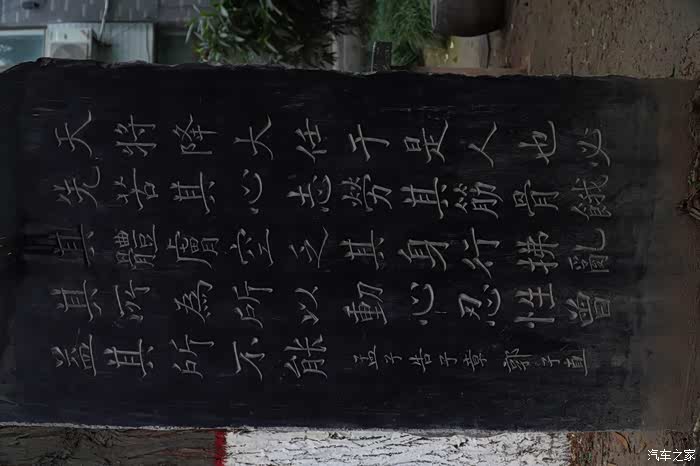 天将降大任于是人也必
先苦其心志勞其筋骨餓
其體膚空乏其身行拂亂
其所為所以動心忍性曾
益其所不能 孟子告子章 郭子直
汽车之家